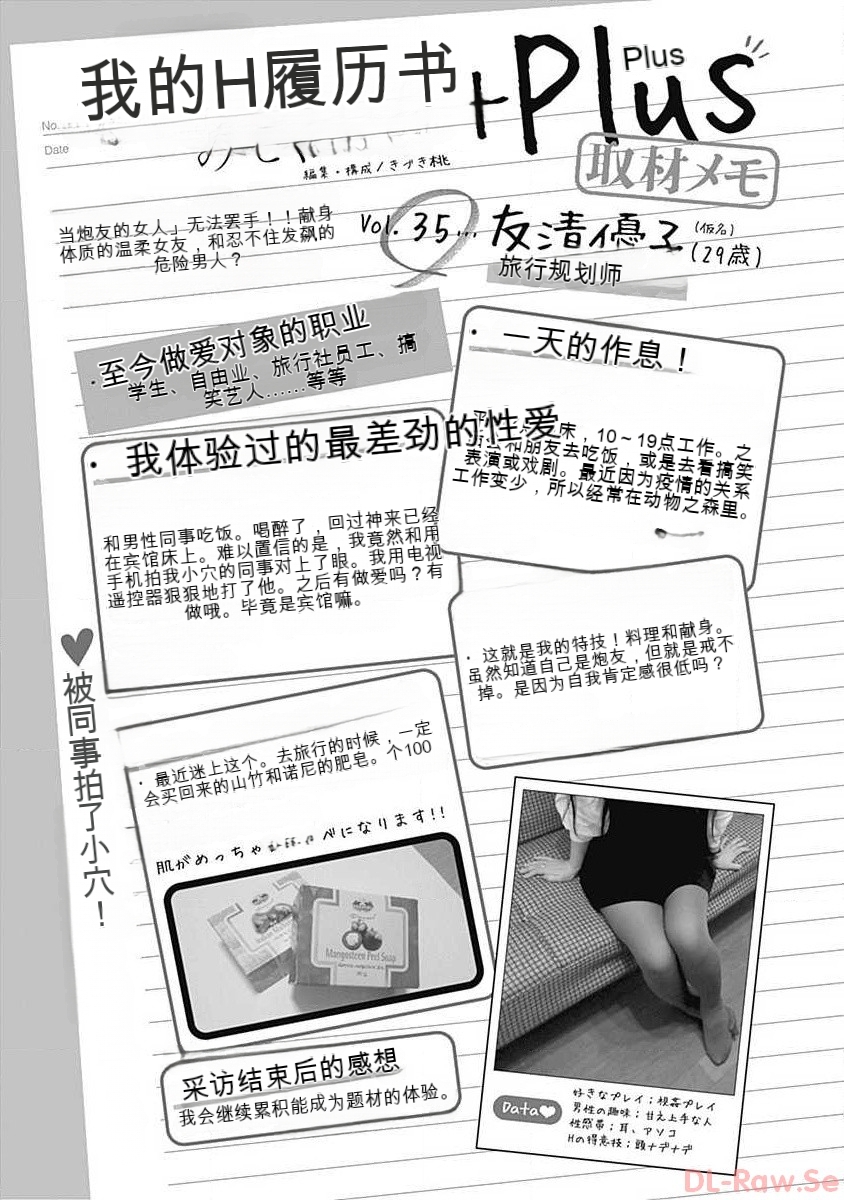 我的H履历书
+Plus
Plus
No.
Date
編集・構成/きづき桃
取材メモ
当炮友的女人」无法罢手！！献身
体质的温柔女友，和忍不住发飙的
危险男人？
Vol. 35... 友清優子(仮名)
(29歳)
旅行规划师
·至今做爱对象的职业
学生、自由业、旅行社员工、搞
笑艺人……等等
· 一天的作息！
床，10～19点工作。之
和朋友去吃饭，或是去看搞笑
表演或戏剧。最近因为疫情的关系
工作变少，所以经常在动物之森里。
· 我体验过的最差劲的性爱
和男性同事吃饭。喝醉了，回过神来已经
在宾馆床上。难以置信的是，我竟然和用
手机拍我小穴的同事对上了眼。我用电视
遥控器狠狠地打了他。之后有做爱吗？有
做哦。毕竟是宾馆嘛。
· 这就是我的特技！料理和献身。
虽然知道自己是炮友，但就是戒不
掉。是因为自我肯定感很低吗？
♥被同事拍了小穴！
· 最近迷上这个。去旅行的时候，一定
会买回来的山竹和诺尼的肥皂。个100
肌がめっちゃ
べになります!!
Mangosteen Peel Soap
采访结束后的感想
我会继续累积能成为题材的体验。
Data♥
好きなプレイ；視姦プレイ
男性の趣味；甘え上手な人
性感帯；耳、アソコ
Hの得意技；頭ナデナデ
DL-Raw.Se